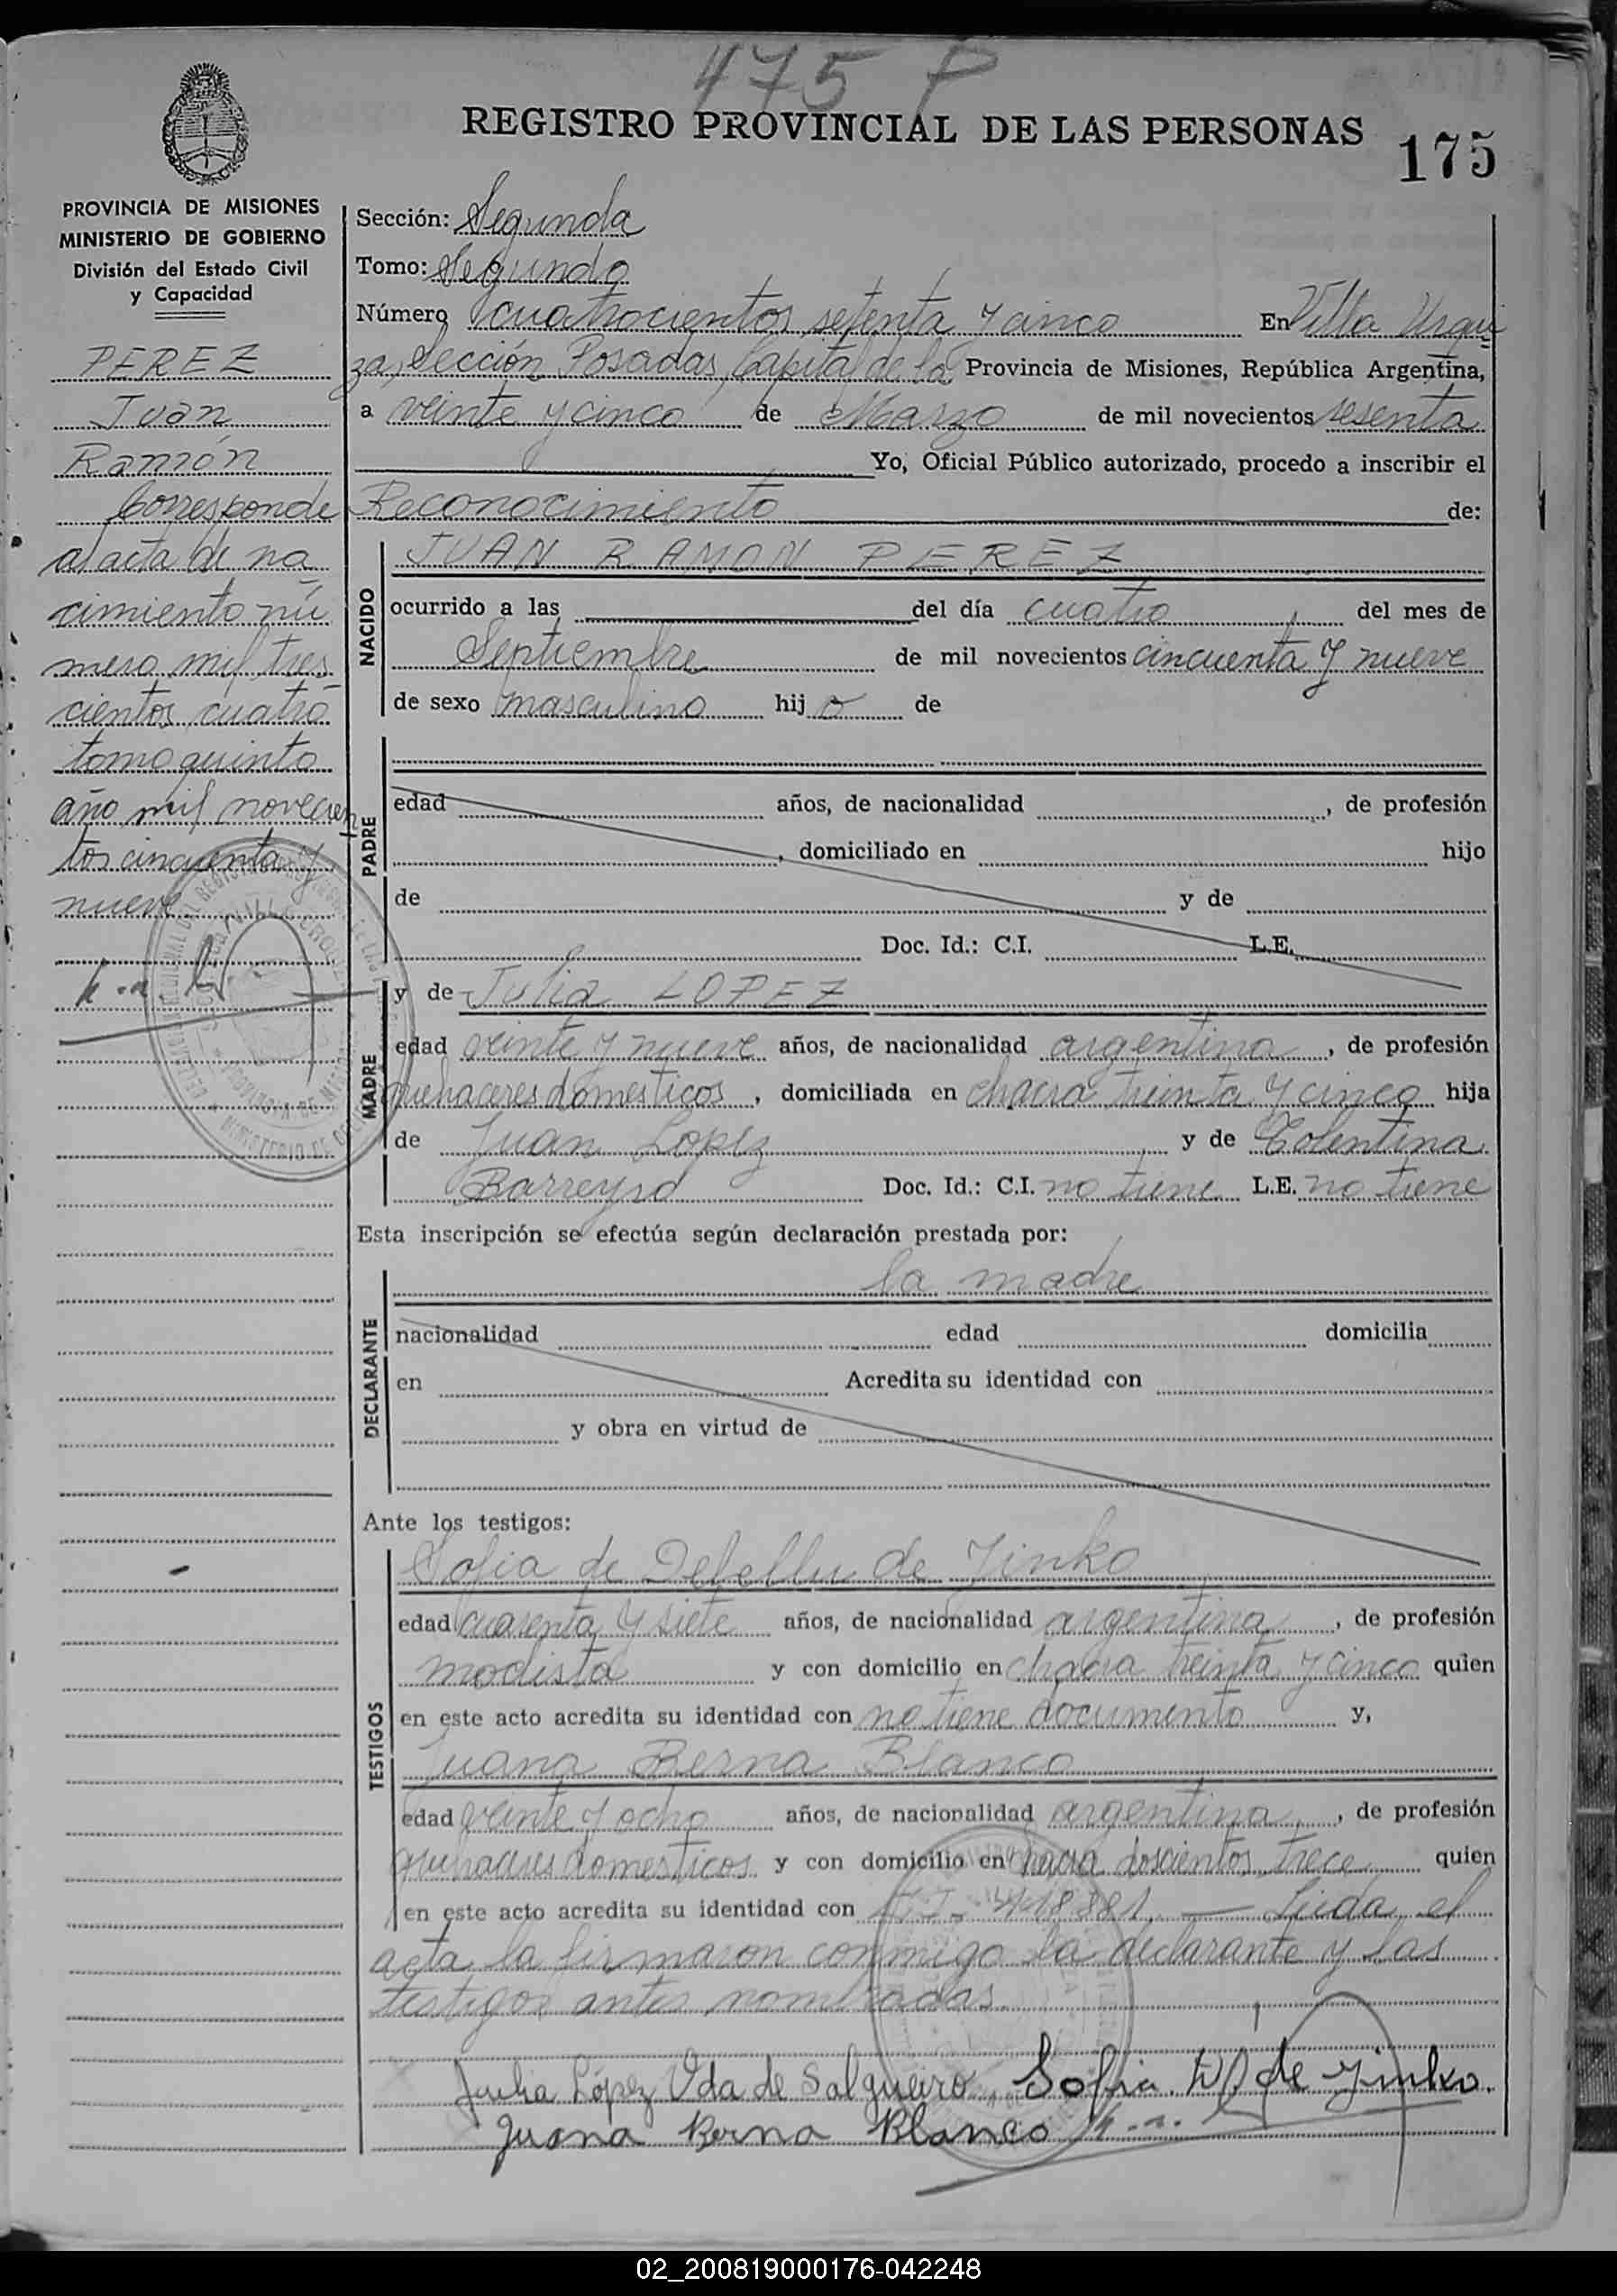 475 P
REGISTRO PROVINCIAL DE LAS PERSONAS
175
PROVINCIA DE MISIONES
MINISTERIO DE GOBIERNO
División del Estado Civil
y Capacidad
PEREZ
Juan
Ramón
Corresponde
al acta de na
cimiento nú
mero mil tres
cientos cuatro
tomo quinto
año mil novecien
tos cincuenta y
nueve
Sección: Segunda
Tomo: Segundo
Número cuatrocientos setenta y cinco En Villa Urqui
za, Sección Posadas, Capital de la Provincia de Misiones, República Argentina,
a veinte y cinco de Marzo de mil novecientos sesenta
Yo, Oficial Público autorizado, procedo a inscribir el
Reconocimiento de:
NACIDO
JUAN RAMON PEREZ
ocurrido a las del día cuatro del mes de
Septiembre de mil novecientos cincuenta y nueve
de sexo masculino hijo de
PADRE
edad años, de nacionalidad , de profesión
, domiciliado en hijo
de y de
Doc. Id.: C.I. L.E.
MADRE
y de Julia LOPEZ
edad veinte y nueve años, de nacionalidad argentina, de profesión
quehaceres domesticos, domiciliada en chacra treinta y cinco hija
de Juan Lopez y de Tolentina
Barreyro Doc. Id.: C.I. no tiene L.E. no tiene
Esta inscripción se efectúa según declaración prestada por:
DECLARANTE
la madre
nacionalidad edad domicilia
en Acredita su identidad con
y obra en virtud de
Ante los testigos:
TESTIGOS
Sofia de de Jinko
edad cuarenta y siete años, de nacionalidad argentina, de profesión
modista y con domicilio en chacra treinta y cinco quien
en este acto acredita su identidad con no tiene documento y,
Juana Berna Blanco
edad veinte y ocho años, de nacionalidad argentina, de profesión
quehaceres domesticos y con domicilio en chacra doscientos trece quien
en este acto acredita su identidad con 418881. — Leida el
acta la firmaron conmigo la declarante y las
testigos antes nombradas.
Julia López Vda de Salgueiro Sofia de Jinko.
Juana Berna Blanco
02_200819000176-042248